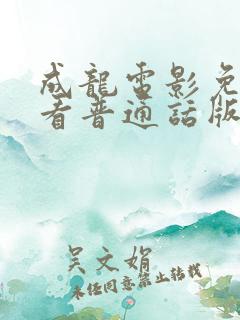 成龍電影免
看普通話版
吴文娟
未经同意禁止转载